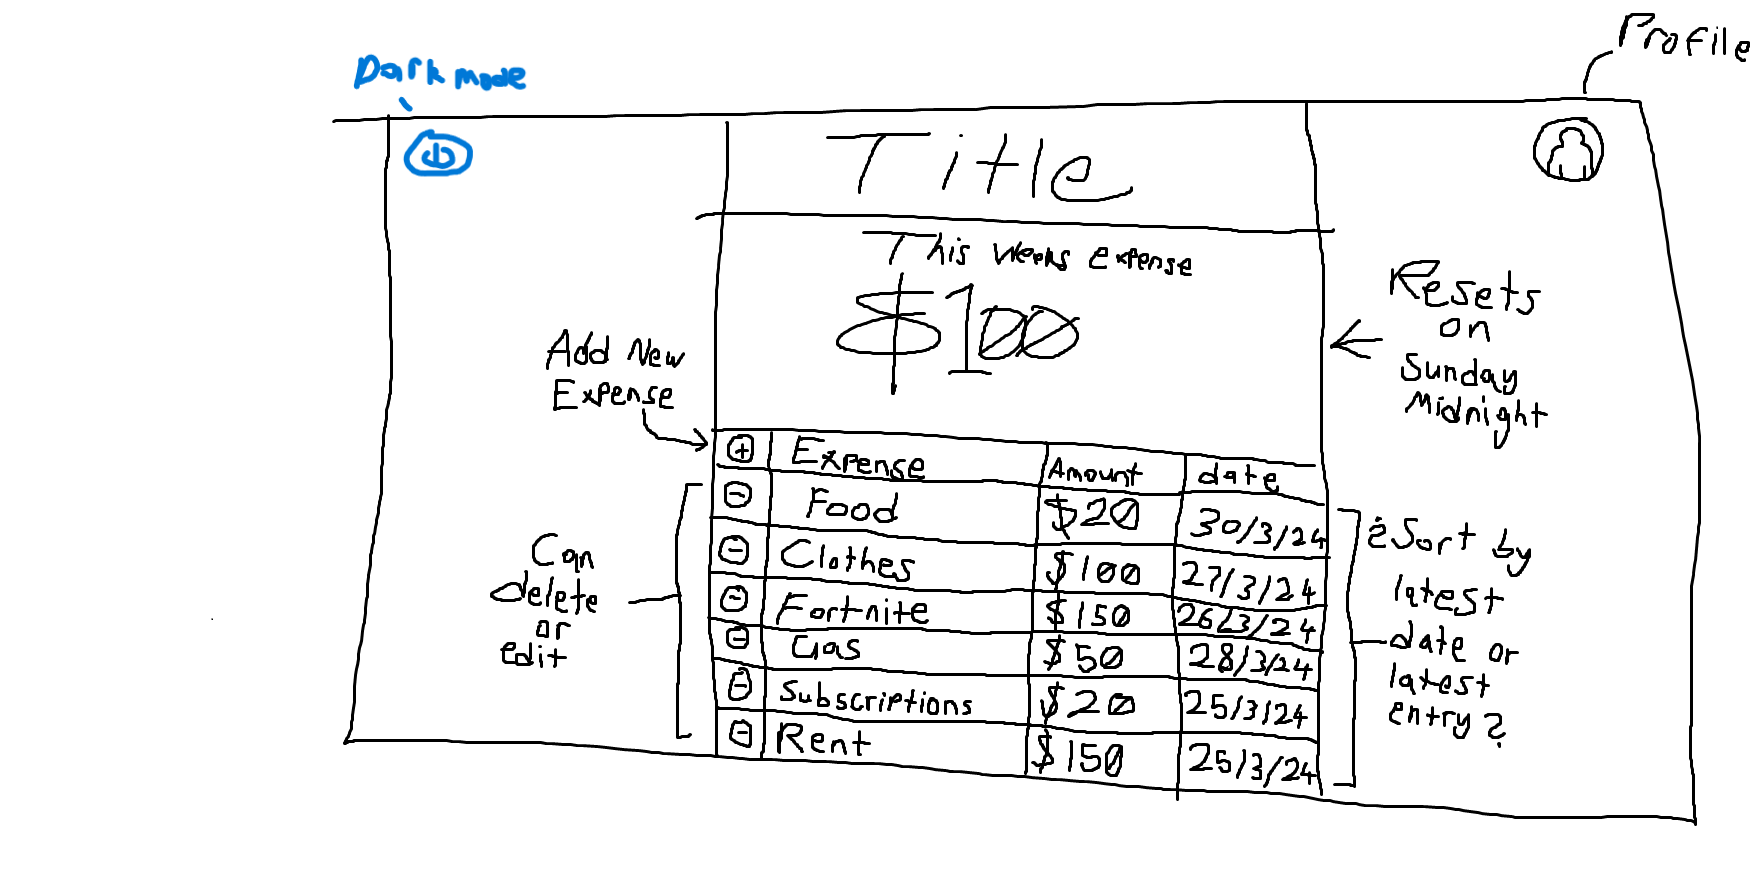 Profile
Dark mode
Title
This weeks expense
$100
Resets
on
Sunday
Midnight
Add New
Expense
Expense Amount date
Food $20 30/3/24
Clothes $100 27/3/24
Fortnite $150 26/3/24
Gas $50 28/3/24
Subscriptions $20 25/3/24
Rent $150 25/3/24
Can
delete
or
edit
Sort by
latest
date or
latest
entry?